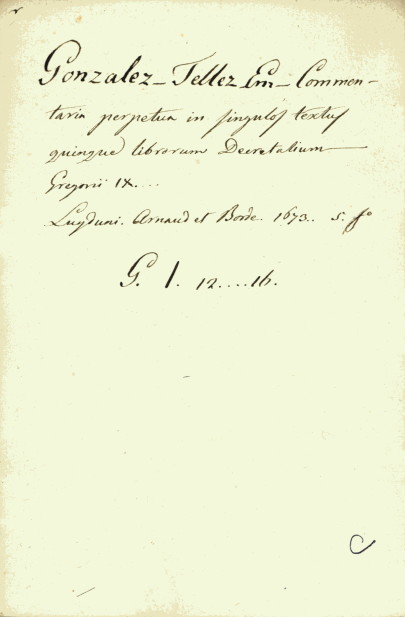 Gonzalez-Tellez Em- Commen-
taria perpetua in singulos textus
quinque librorum Decretalium
Gregorii IX....
Lugduni. Arnaud et Borde. 1673.. 5. fo
G. I. 12....16.
C